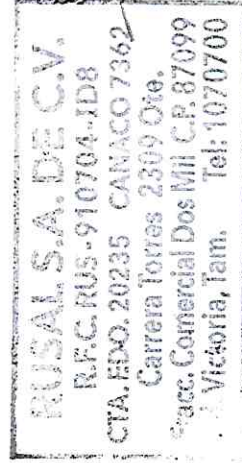 RUSAL S.A. DE C.V.
R.F.C. RUS-910704-JD8
CTA. EDO. 20235 CANACO 7362
Carrera Torres 2309 Ote.
Fracc. Comercial Dos Mil C.P. 87099
Victoria, Tam. Tel: 1070700